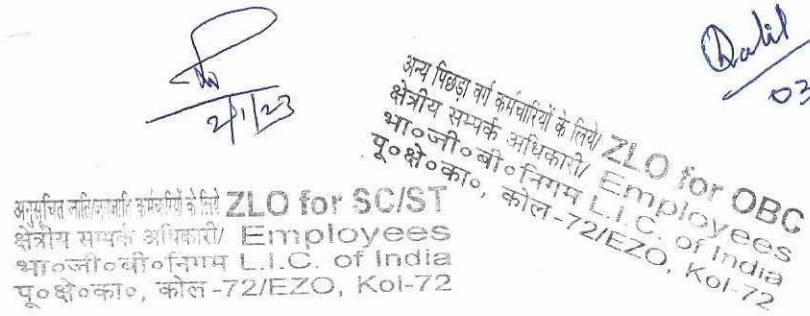 2/1/23
03
अनुसूचित जाति/जनजाति कर्मचारियों के लिये ZLO for SC/ST
क्षेत्रीय सम्पर्क अधिकारी/ Employees
भा०जी०बी०निगम L.I.C. of India
पू०क्षे०का०, कोल-72/EZO, Kol-72
अन्य पिछड़ा वर्ग कर्मचारियों के लिये/ ZLO for OBC
क्षेत्रीय सम्पर्क अधिकारी/ Employees
भा०जी०बी०निगम L.I.C. of India
पू०क्षे०का०, कोल-72/EZO, Kol-72